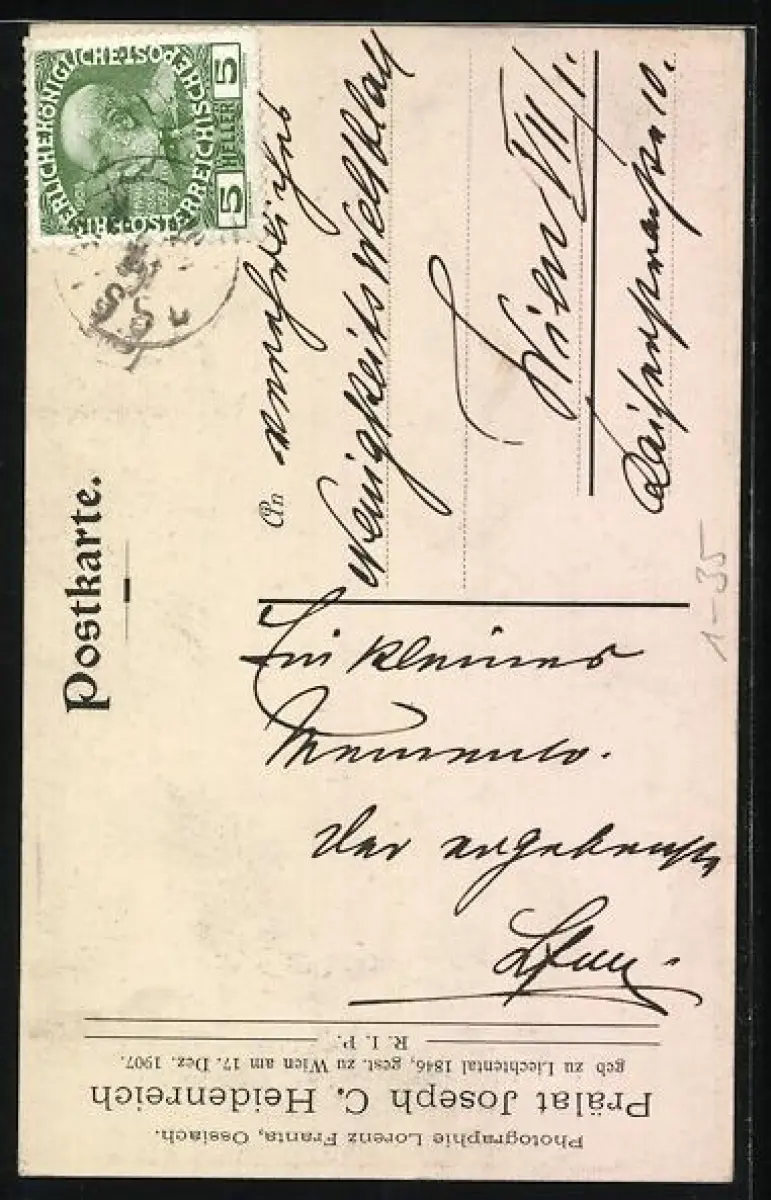 KAISERLICHE KÖNIGLICHE ÖSTERREICHISCHE POST
5 HELLER 5
1848
1908
Postkarte.
An
Neuigkeits Weltblatt
Wien VII/1.
Kaiserstrasse 10.
Ein kleines
Memento.
Der ergebenste
1-35
Photographie Lorenz Franta, Ossiach.
Prälat Joseph C. Heidenreich
geb zu Liechtental 1846, gest. zu Wien am 17. Dez. 1907.
R. I. P.